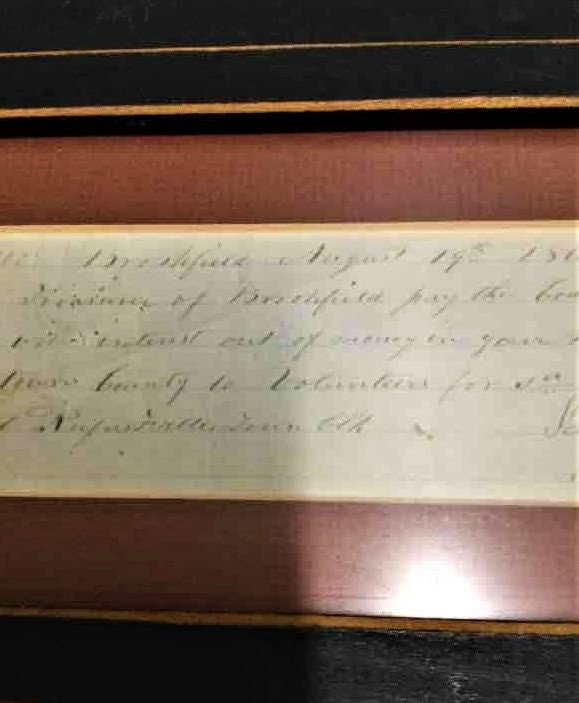 Brookfield August 19th 186
Treasurer of Brookfield pay the bea
with interest out of money in your
town bounty to Volunteers for
Town Clk